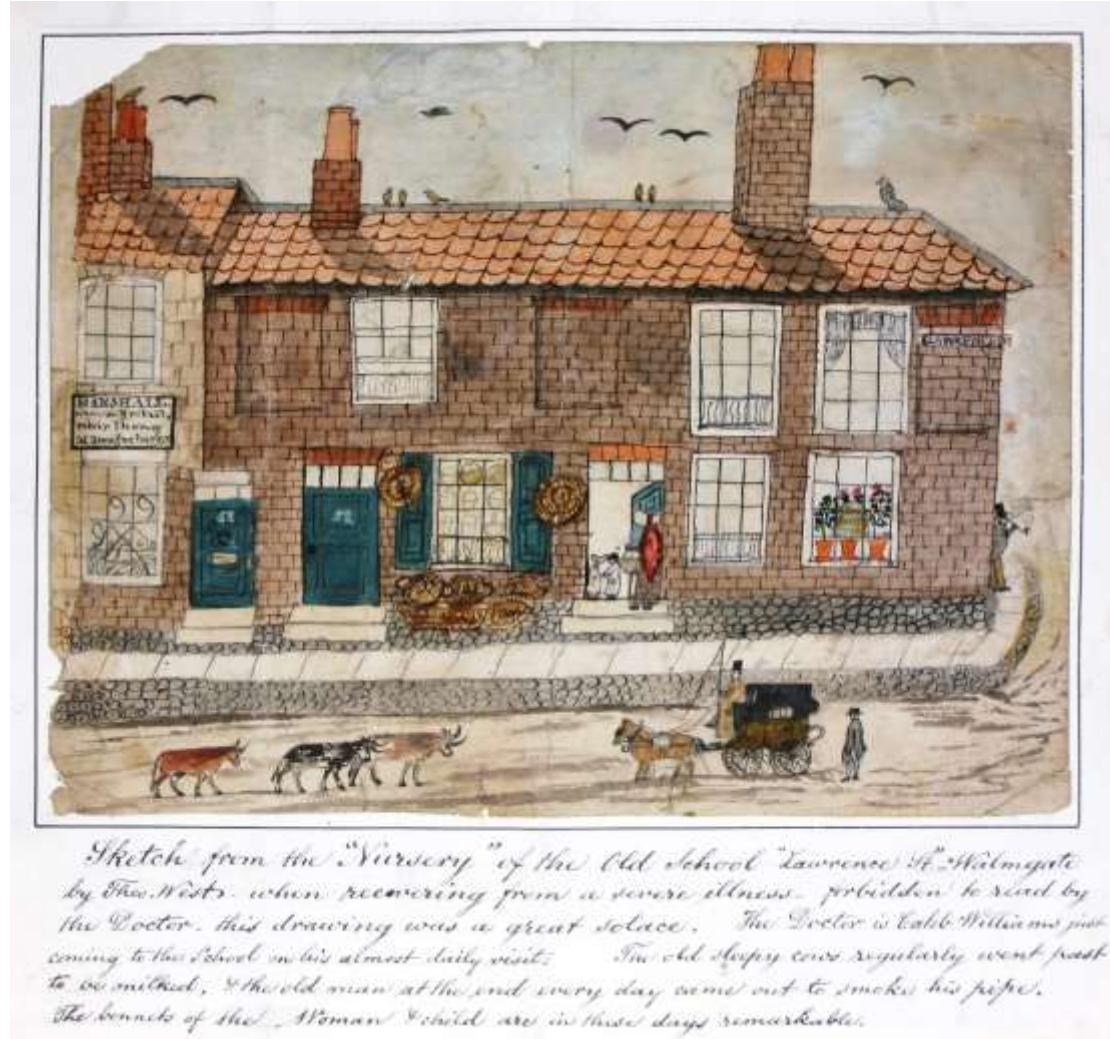 MARSHALL
Sketch from the "Nursery" of the Old School "Lawrence St" Walmgate
by Theo. West. when recovering from a severe illness - forbidden to read by
the Doctor. this drawing was a great solace. The Doctor is Caleb Williams just
coming to the School on his almost daily visit. The old sleepy cows regularly went past
to be milked, & the old man at the end every day came out to smoke his pipe.
The bonnets of the Woman & child are in these days remarkable.